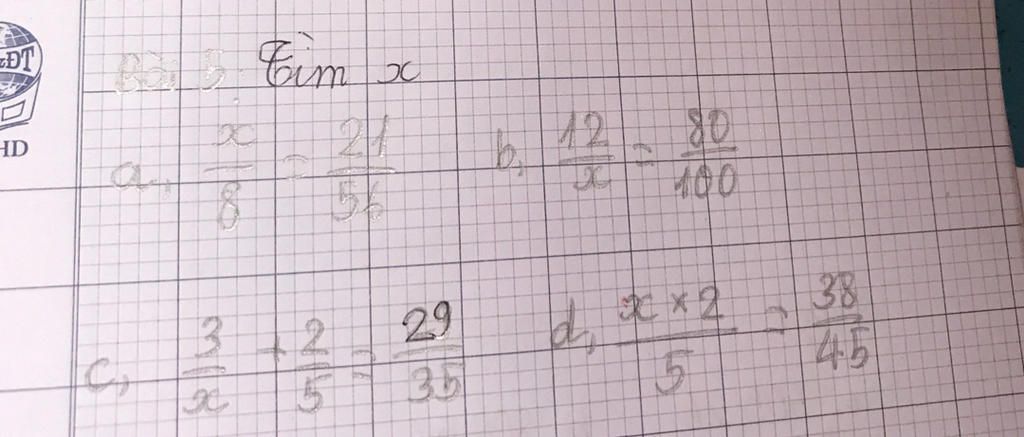 &ĐT
HD
Bài 5: Tìm x
a, x/8 = 21/56 b, 12/x = 80/100
c, 3/x + 2/5 = 29/35 d, x × 2/5 = 38/45